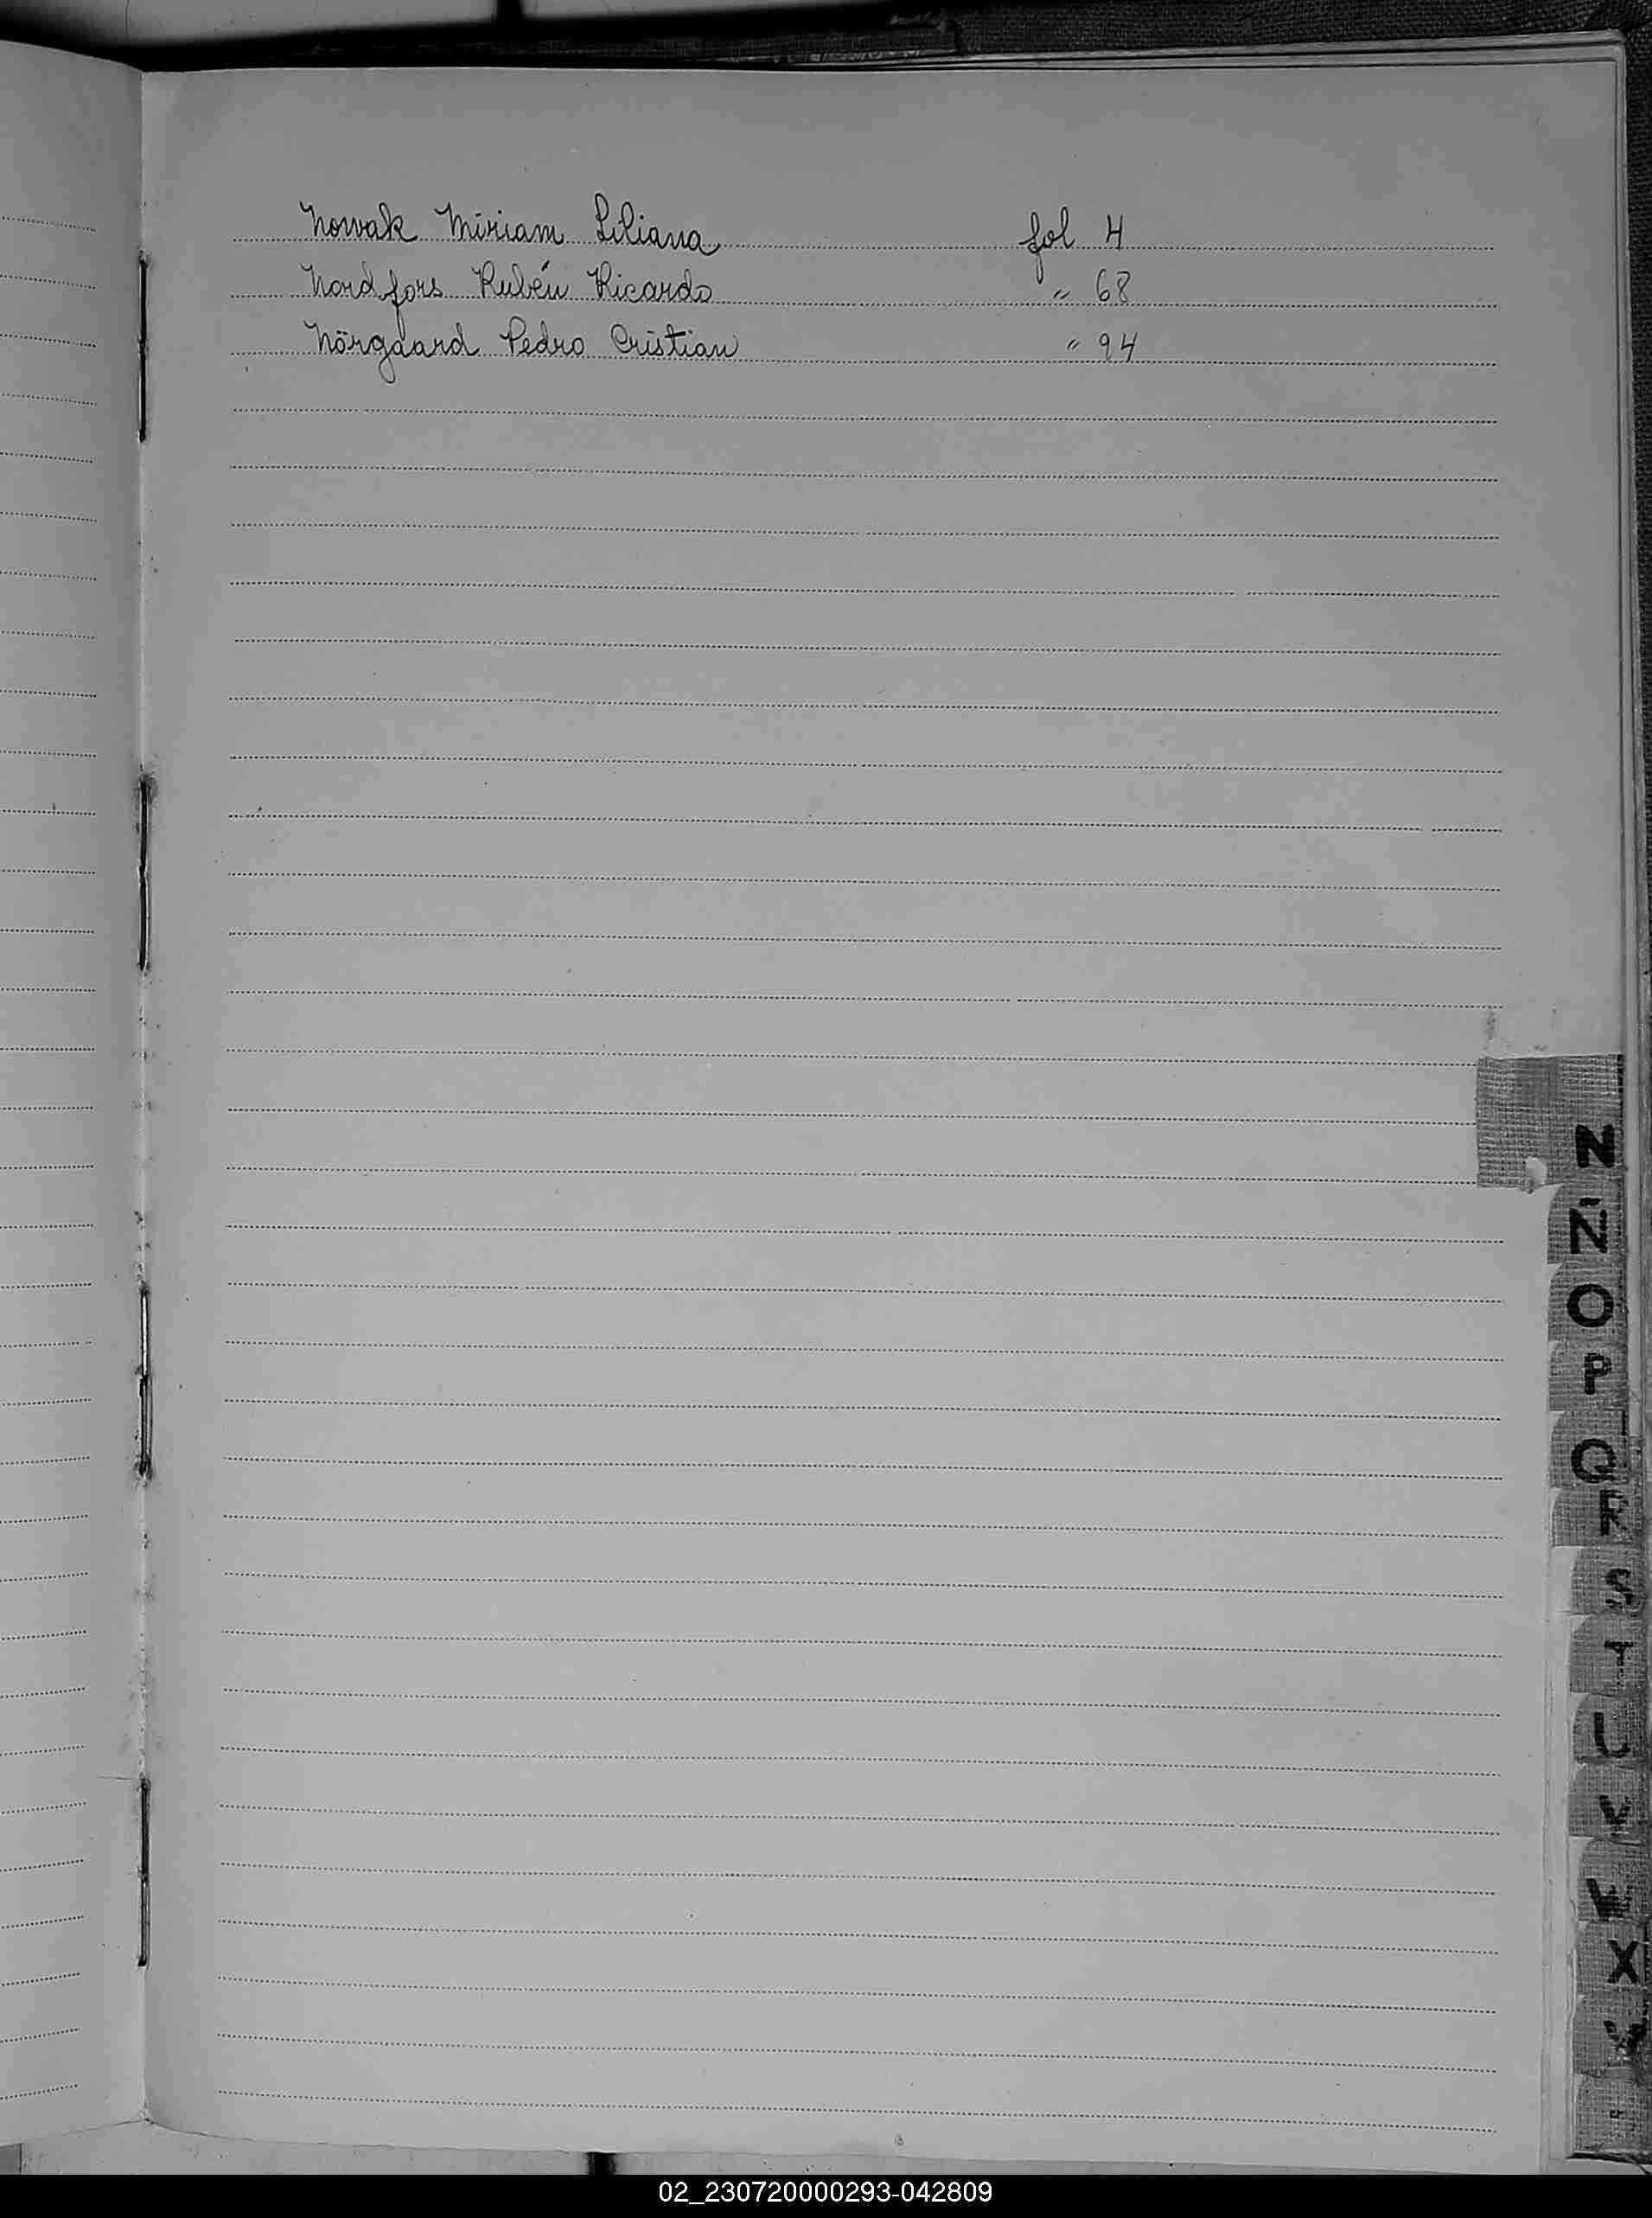 Nowak Miriam Liliana fol 4
Nordfors Rubén Ricardo " 68
Nörgaard Pedro Cristian " 94
N
Ñ
O
P
Q
R
S
T
U
V
X
02_230720000293-042809